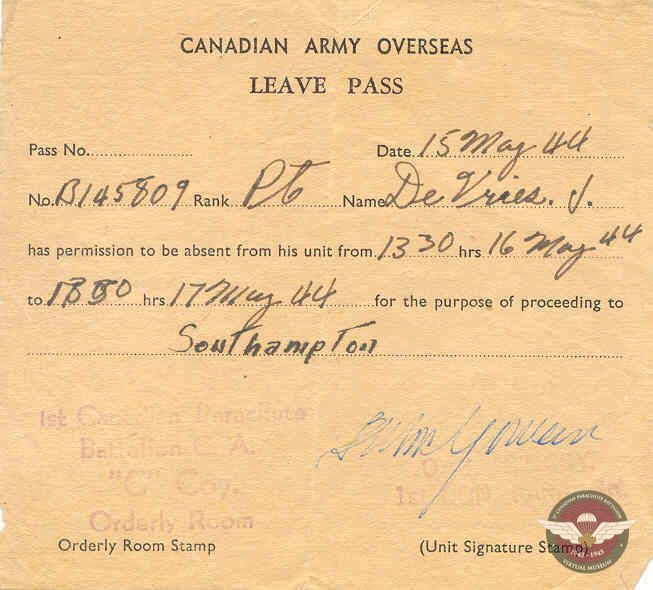 CANADIAN ARMY OVERSEAS
LEAVE PASS
Pass No. Date 15 May 44
No. B145809 Rank Pte Name De Vries. J.
has permission to be absent from his unit from 1330 hrs 16 May 44
to hrs 17 May 44 for the purpose of proceeding to
Southampton
1st Canadian Parachute
Battalion C.A.
"C" Coy.
Orderly Room
Orderly Room Stamp (Unit Signature Stamp)
1ST CANADIAN PARACHUTE BATTALION
1942 - 1945
VIRTUAL MUSEUM